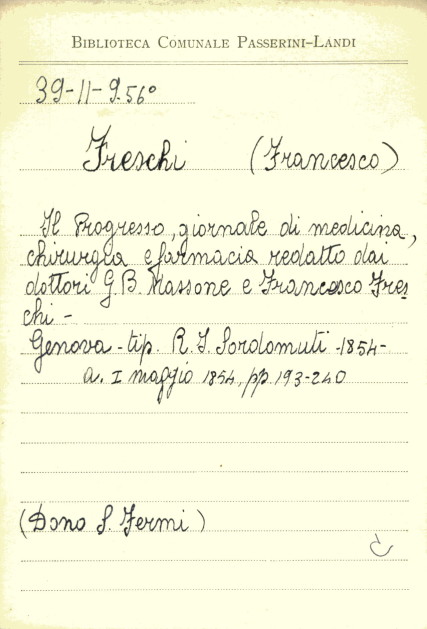 BIBLIOTECA COMUNALE PASSERINI-LANDI
39-11-9.56°
Freschi (Francesco)
Il Progresso, giornale di medicina,
chirurgia e farmacia redatto dai
dottori G.B. Massone e Francesco Fres
chi -
Genova - tip. R. I. Sordomuti - 1854 -
a. I maggio 1854, pp. 193-240
(Dono S. Fermi)